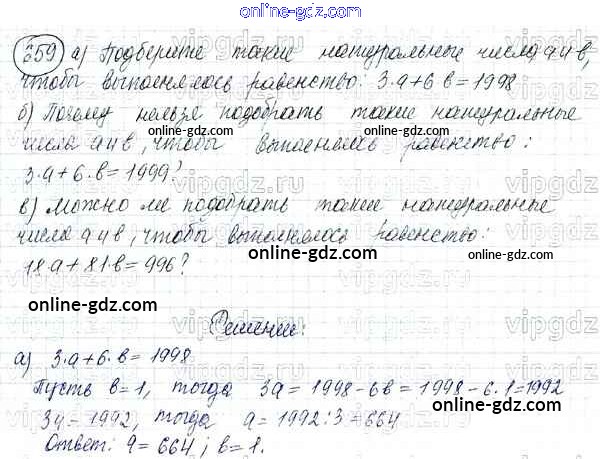 online-gdz.com
659 а) Подберите такие натуральные числа а и в,
чтобы выполнялось равенство: 3·а+6·в=1998
б) Почему нельзя подобрать такие натуральные
числа а и в, чтобы выполнялось равенство:
3·а+6·в=1999?
в) Можно ли подобрать такие натуральные
числа а и в, чтобы выполнялось равенство:
18·а+81·в=996?
Решение:
а) 3·а+6·в=1998
Пусть в=1, тогда 3а=1998-6в=1998-6·1=1992
3а=1992, тогда а=1992:3=664
Ответ: а=664; в=1.
online-gdz.com
online-gdz.com
online-gdz.com
online-gdz.com
online-gdz.com
online-gdz.com
online-gdz.com
online-gdz.com
online-gdz.com
vipgdz.ru
vipgdz.ru
vipgdz.ru